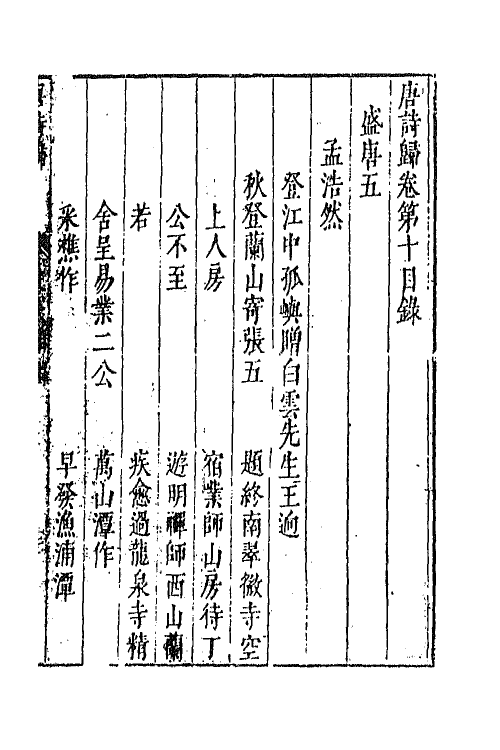 唐詩歸卷第十目錄
盛唐五
孟浩然
登江中孤嶼贈白雲先生王迥
秋登蘭山寄張五　題終南翠微寺空
上人房　宿業師山房待丁
公不至　遊明禪師西山蘭
若　疾愈過龍泉寺精
舍呈易業二公　萬山潭作
采樵作　早發漁浦潭